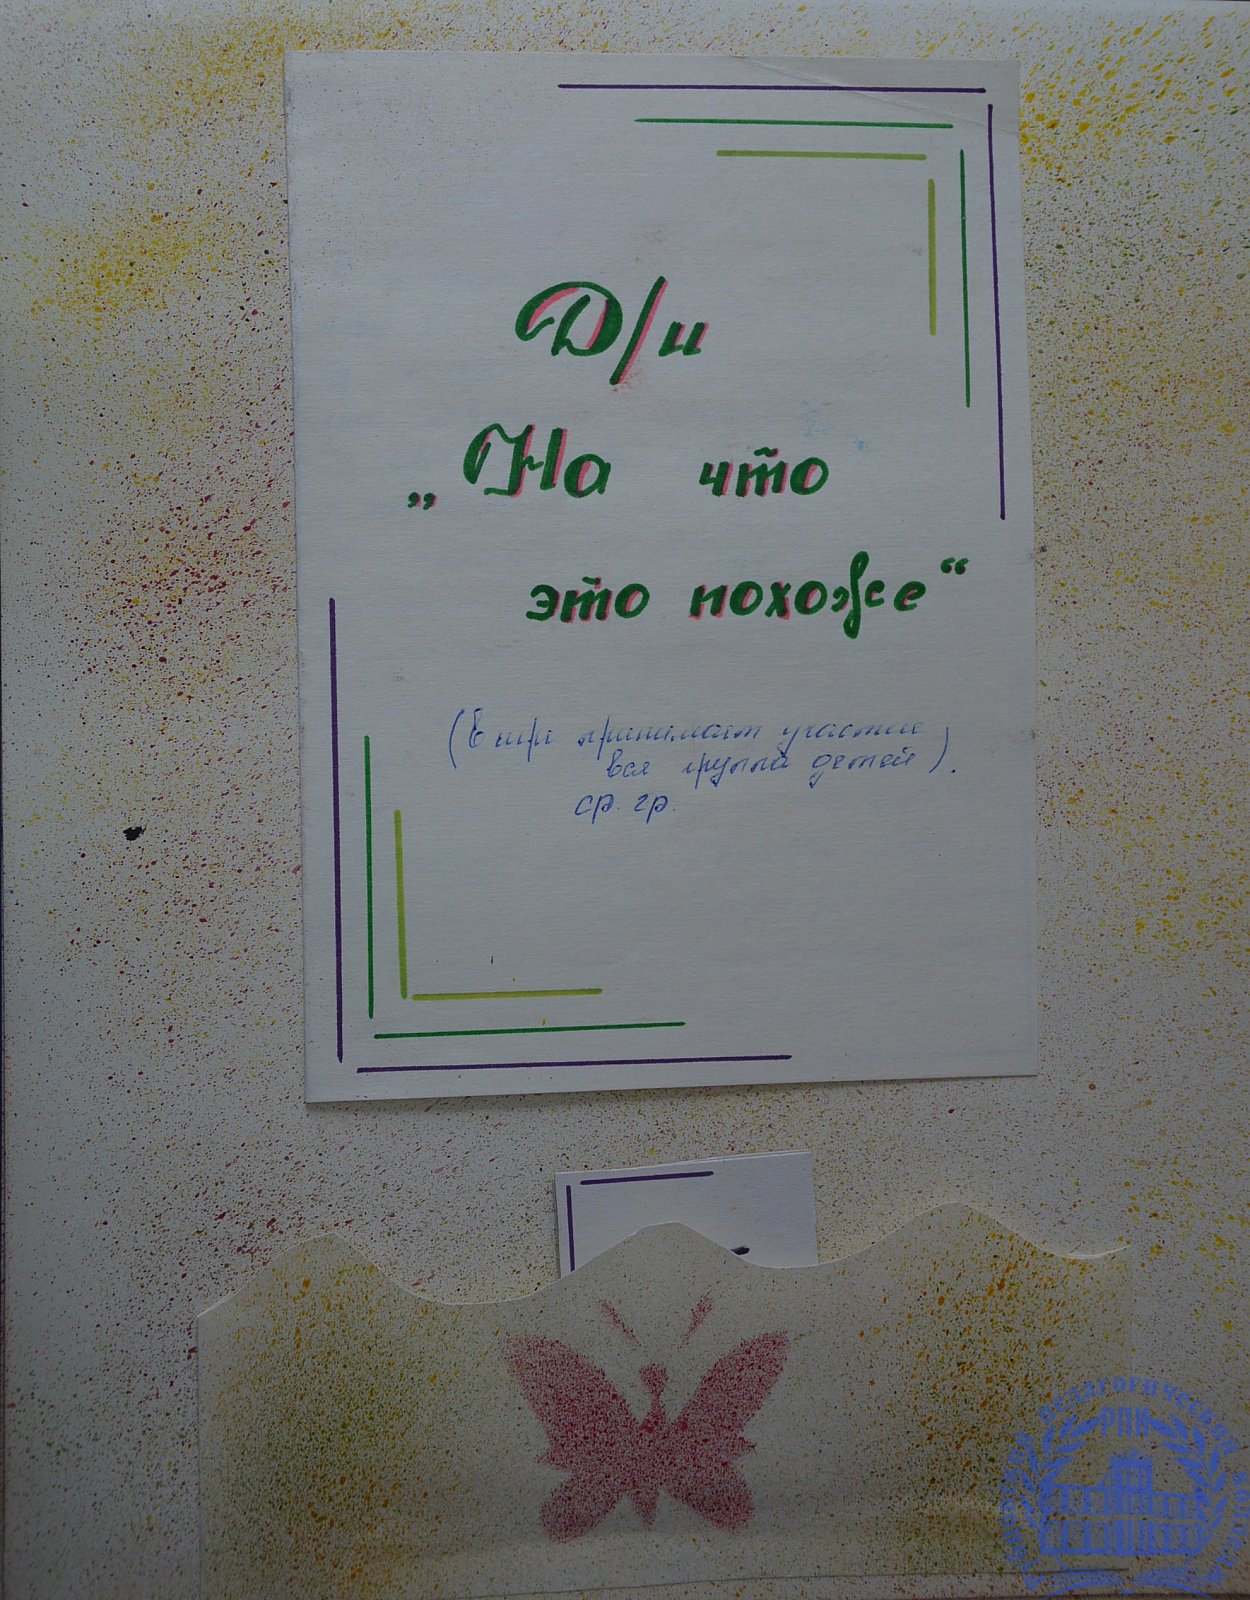 Д/и
„На что
это похоже“
(В игре принимает участие
вся группа детей).
ср. гр.
педагогический
РПК